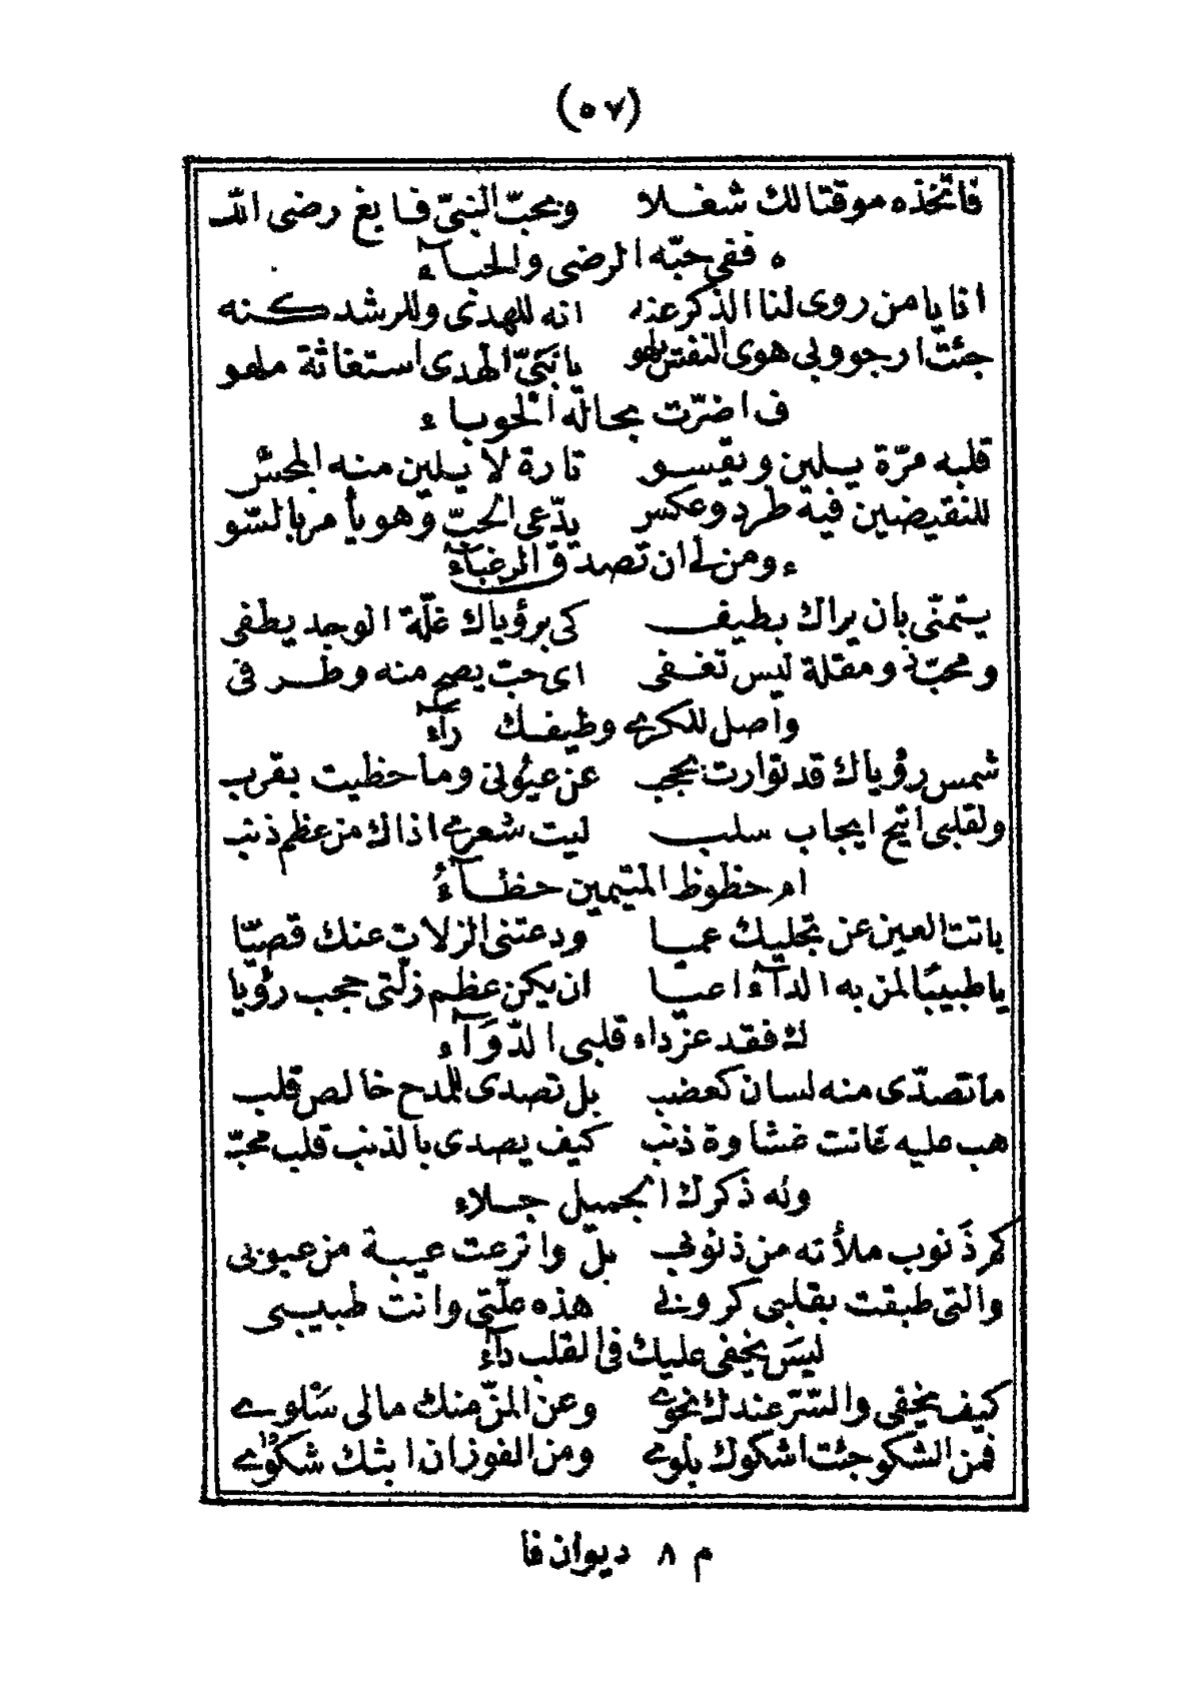 (٥٧)
فاتّخذه موقتا لك شغلا وبحبّ النبىّ فابغ رضى اللّه
ه ففى حبّه الرضى والحبآء
انا يا من روى لنا الذكر عنه انه للهدى وللرشد كنه
جئت ارجو وبى هوى النفس يلهو يا نبىّ الهدى استغاثة ملهو
ف اضرّت بحاله الحوباء
قلبه مرّة يلين ويقسو تارة لا يلين منه المحسّ
للنقيضين فيه طرد وعكس يدّعى الحبّ وهو يأمر بالسّو
ء ومن لى ان تصدق الرغبآء
يتمنّى بان يراك بطيف كى برؤياك غلّة الوجد يطفى
ومحبّ ومقلة ليس تغفى اى حبّ يصح منه وطرفى
واصل للكرى وطيفك رآء
شمس رؤياك قد توارت بحجب عن عيونى وما حظيت بقرب
ولقلبى اتيح ايجاب سلب ليت شعرى اذاك من عظم ذنب
ام حظوظ المتيمين حظآء
باتت العين عن تجليك عميا ودعتنى الزلات عنك قصيّا
يا طبيبًا لمن به الدآء اعيا ان يكن عظم زلّتى حجب رؤيا
ك فقد عزّ داء قلبى الدّوآء
ما تصدّى منه لسان كعضب بل تصدى للمدح خالص قلب
هب عليه غانت غشاوة ذنب كيف يصدى بالذنب قلب محبّ
وله ذكرك الجميل جلاء
كم ذنوب ملأته من ذنوبى بل واترعت عيبة من عيوبى
والتى طبقت بقلبى كروبى هذه علّتى وانت طبيبى
ليس يخفى عليك فى القلب دآء
كيف يخفى والسّرّ عندك نحوى وعن المنّ منك مالى سَلوى
فمن الشكو جئت اشكوك بلوى ومن الفوز ان ابثك شكوى
م ٨ ديوان فا